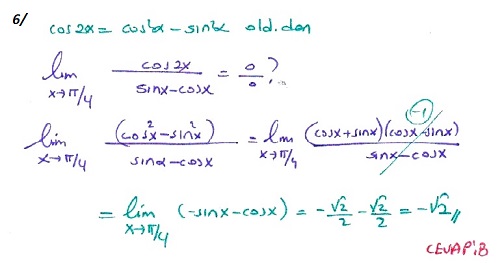 6/
cos2x = cos²x - sin²x old.dan
lim x→π/4 cos2x / (sinx - cosx) = 0/0 ?
lim x→π/4 (cos²x - sin²x) / (sinx - cosx) = lim x→π/4 (cosx + sinx)(cosx - sinx) / (sinx - cosx) (-1)
= lim x→π/4 (-sinx - cosx) = -√2/2 - √2/2 = -√2 //
CEVAP:B